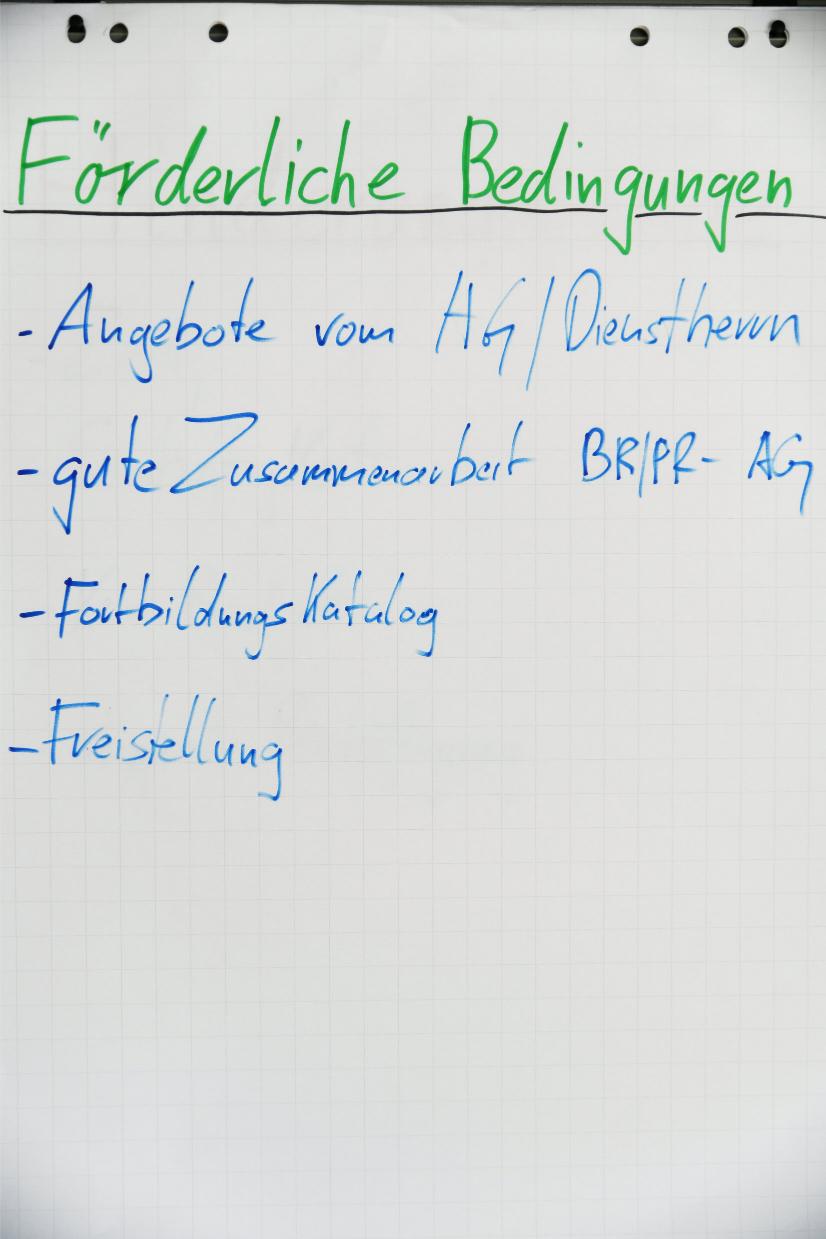 Förderliche Bedingungen
- Angebote vom AG/Dienstherrn
- gute Zusammenarbeit BR/PR- AG
- Fortbildungskatalog
- Freistellung